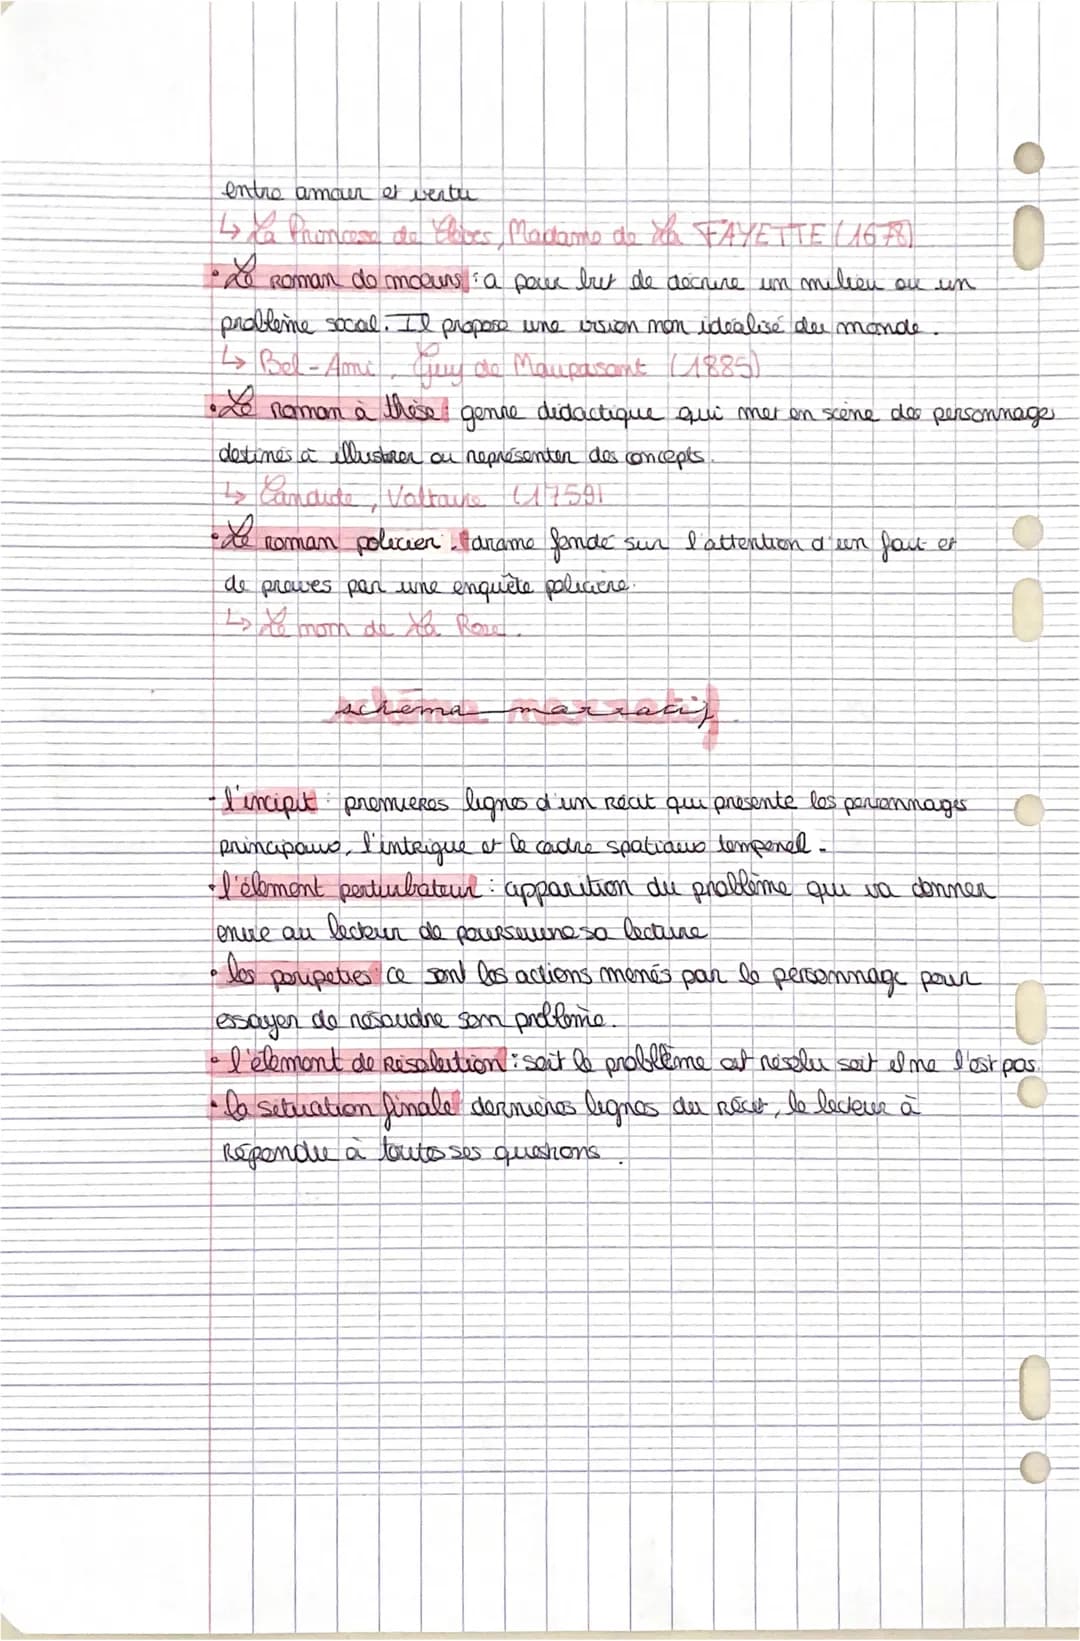 entre amour et vertu
↳ La Princesse de Clèves, Madame de La FAYETTE (1678)
• Le roman de moeurs : a pour but de décrire un milieu ou un
problème social. Il propose une vision non idéalisé du monde.
↳ Bel-Ami, Guy de Maupasant (1885)
• Le roman à thèse : genre didactique qui met en scène des personnages
destinés à illustrer ou représenter des concepts.
↳ Candide, Voltaire (1759)
• Le roman policier. fondé sur l'attention d'un fait et
de preuves par une enquête policière.
↳ Le nom de La Rose.
schéma narratif
• l'incipit : premieres lignes d'un récit qui présente les personnages
principaux, l'intrigue et le cadre spatiaux temporel.
• l'élément perturbateur : apparition du problème qui va donner
envie au lecteur de poursuivre sa lecture
• les peripeties : ce sont les actions menés par le personnage pour
essayer de résoudre son problème.
• l'élément de Résolution : soit le problème est résolu soit il ne l'est pas.
• la situation finale : dernières lignes du récit, le lecteur à
Répondu à toutes ses questions.